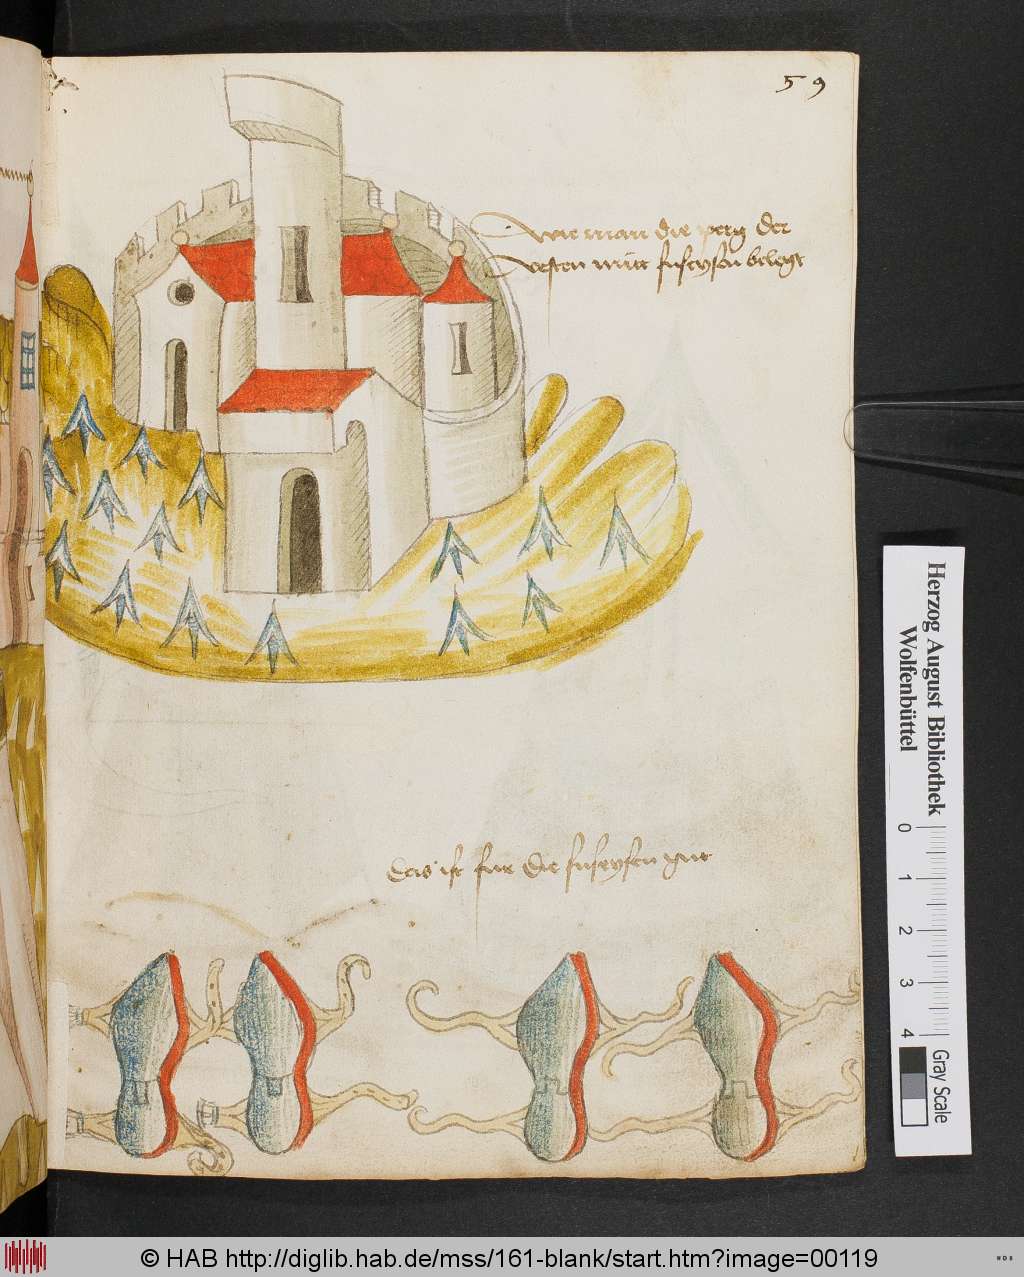 59
wie man die perg der
vesten mitt fuseysen belegt
das ist fur die fuseysen gut
Herzog August Bibliothek
Wolfenbüttel
0 1 2 3 4
Gray Scale
© HAB http://diglib.hab.de/mss/161-blank/start.htm?image=00119